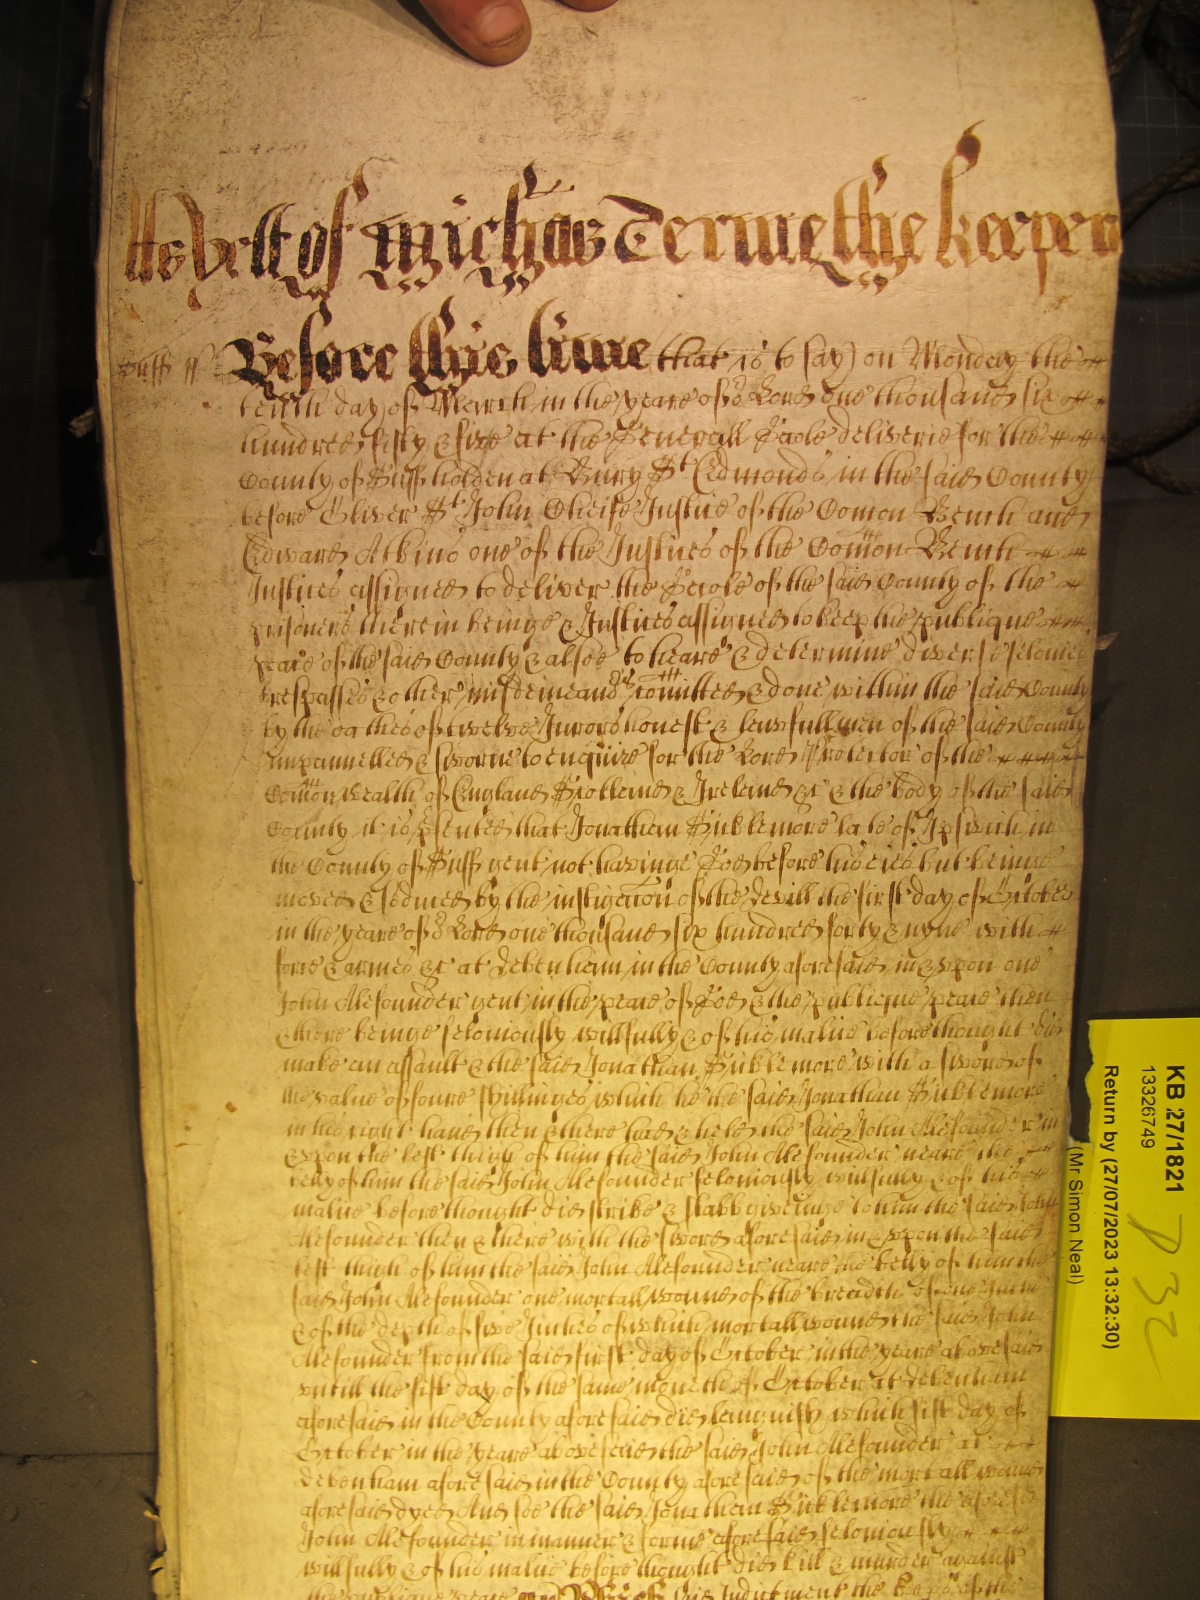 As yett of Michas Terme the keepers
Suff ss Before this time that is to say on Monday the
tenth day of March in the yeare of or Lord one thousand six
hundred fifty & five at the Generall Gaole deliverie for the
County of Suff holden at Bury St Edmonds in the said County
before Oliver St John Cheife Justice of the Comon Bench and
Edward Atkins one of the Justices of the Comon Bench
Justices assigned to deliver the Gaole of the said County of the
prisoners therein beinge & Justices assigned to keep the publique
peace of the said County & alsoe to heare & determine divers felonies
trespasses & other misdemeanors comitted & done within the said County
by the oathes of twelve Jurors honest & lawfull men of the said County
impannelled & sworne to enquire for the Lord Protector of the
Comon wealth of England Scotland & Ireland &c & the body of the said
County it is psented that Jonathan Sicklemore late of Ipswich in
the County of Suff gent not havinge God before his eies but beinge
moved & seduced by the instigation of the devill the first day of October
in the yeare of or Lord one thousand six hundred forty & nyne with
force & armes &c at debenham in the County aforesaid in & upon one
John Alefounder gent in the peace of God & the publique peace then
& there beinge feloniously willfully & of his malice beforethought did
make an assault & the said Jonathan Sicklemore with a sword of
the value of foure shillinges which he the said Jonathan Sicklemore
in his right hand then & there had & held the said John Alefounder in
& upon the left thigh of him the said John Alefounder neare the
belly of him the said John Alefounder feloniously willfully & of his
malice beforethought did strike & stabb giveinge to him the said John
Alefounder then & there with the sword aforesaid in & upon the said
left thigh of him the said John Alefounder neare the belly of him the
said John Alefounder one mortall wound of the breadth of one Inche
& of the depth of five Inches of which mortall wound the said John
Alefounder from the said first day of October in the yeare abovesaid
untill the fift day of the same moneth of October at debenham
aforesaid in the County aforesaid did languish which fift day of
October in the yeare abovesaid the said John Alefounder at
debenham aforesaid in the County aforesaid of the mortall wound
aforesaid dyed And soe the said Jonathan Sicklemore the aforesd
John Alefounder in manner & forme aforesaid feloniously
willfully & of his malice beforethought did kill & murder against
the publique peace Which said Indictment the keeps of the
KB 27/1821
13326749
Return by (27/07/2023 13:32:30)
(Mr Simon Neal)
P 32